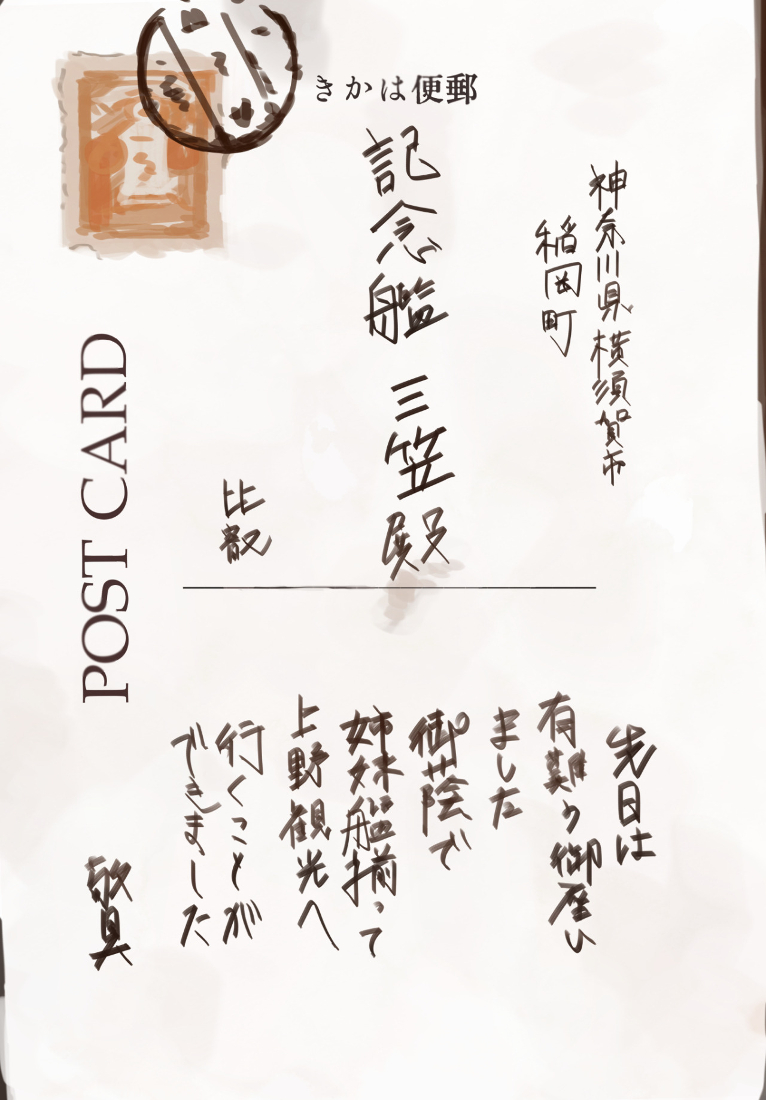 きかは便郵
神奈川県横須賀市
稲岡町
記念艦 三笠殿
比叡
POST CARD
先日は
有難う御座い
ました
御蔭で
姉妹艦揃って
上野観光へ
行くことが
できました
敬具